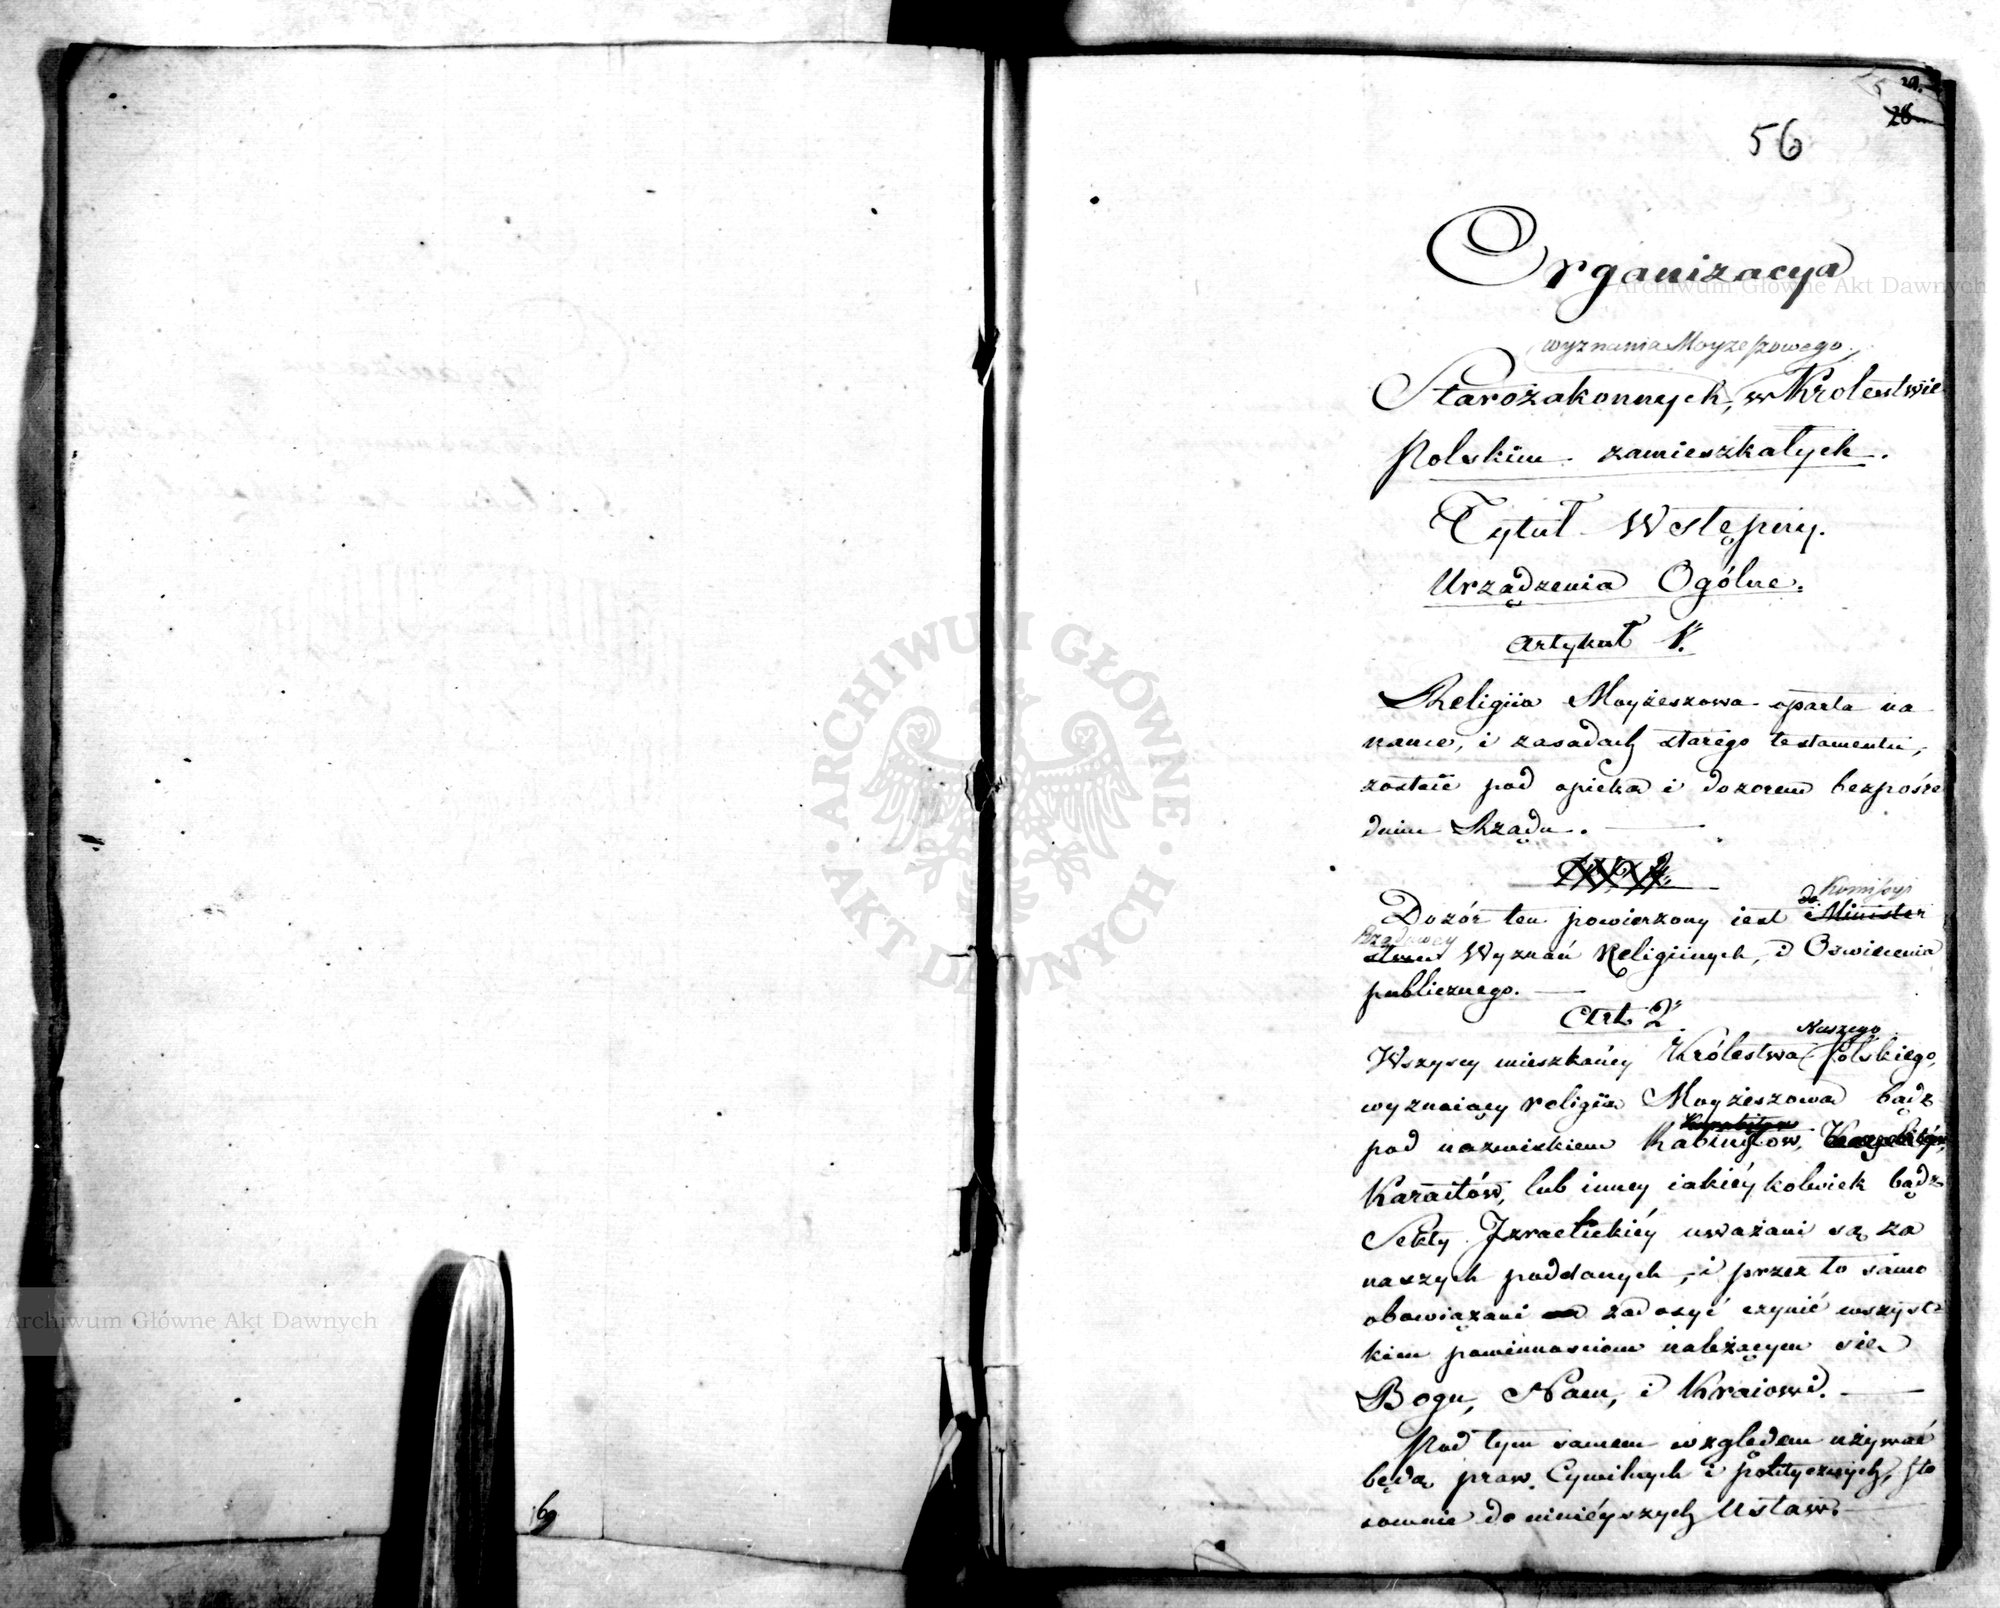 29.
28
56
Organizacya
wyznania Moyzeszowego,
Starozakonnych, w Krolestwie
Polskim zamieszkałych.
Tytuł Wstępny.
Urządzenia Ogólne.
Artykuł 1.
Religiia Moyżeszowa oparta na
nauce, i zasadach starego testamentu,
zostaie pod opieką i dozorem bezpośre
dnim Rządu.
Art. 2.
do Komissyi
Dozór ten powierzony iest Minister
Rządowey
stwu Wyznań Religiinych, i Oswiecenia
publicznego.
Art. 2.
Naszego
Wszyscy mieszkańcy Królestwa Polskiego,
wyznaiący religiią Moyżeszową bądz
pod nazwiskiem Rabinistów,
Karaitów, lub inney iakiéykolwiek bądz
Sekty Izraelickiéy uważani są za
naszych poddanych, i przez to samo
obowiązani zadosyć czynić wszyst-
kim powinnosciom należącym się
Bogu, Nam, i Kraiowi.
Pod tym samem względem używać
będą praw Cywilnych i politycznych, sto
sownie do ninieyszych Ustaw.
69
Archiwum Główne Akt Dawnych
Archiwum Główne Akt Dawnych
ARCHIWUM GŁÓWNE
AKT DAWNYCH